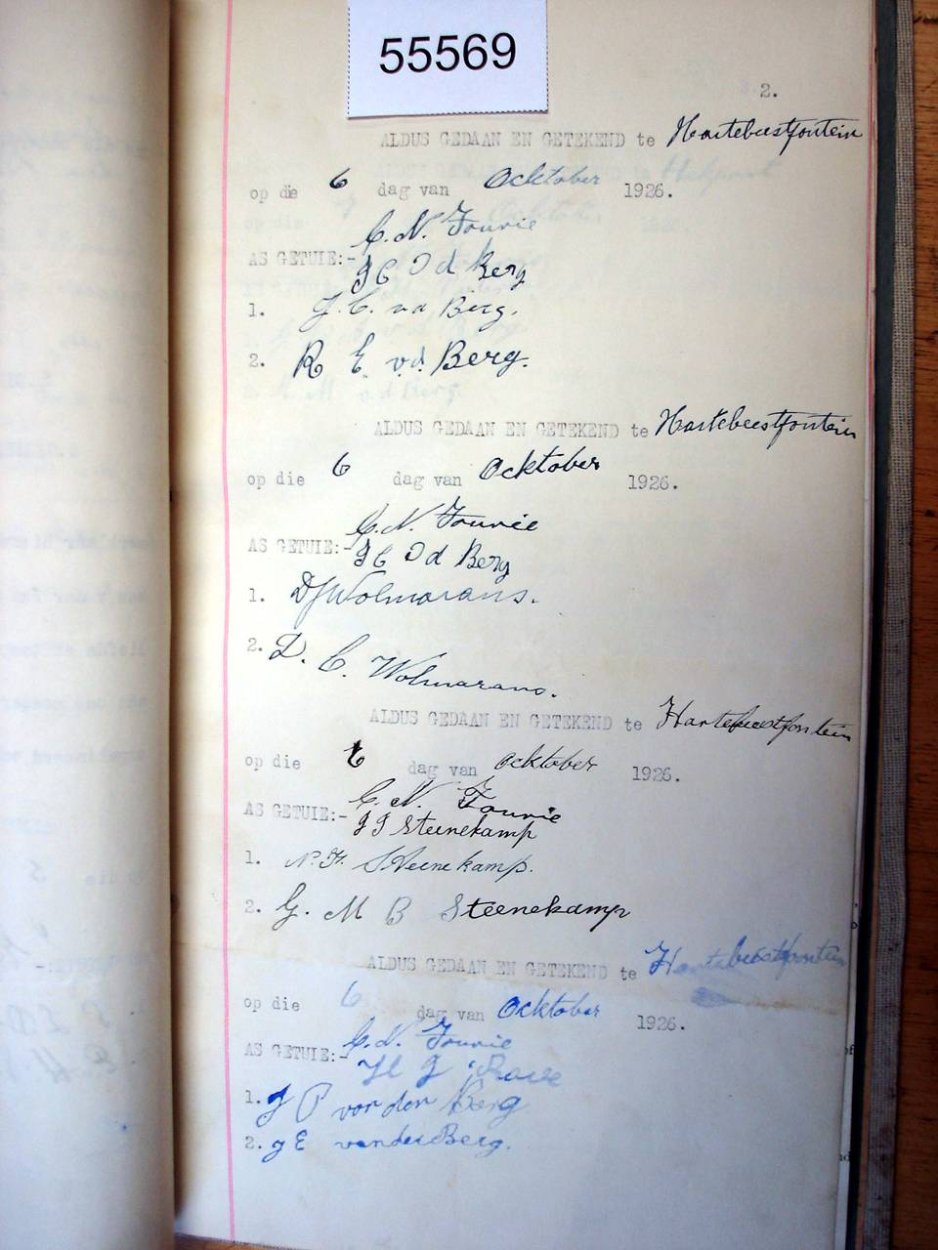 55569
2.
ALDUS GEDAAN EN GETEKEND te Hartebeestfontein
op die 6 dag van Ocktober 1926.
C. N. Fourie
AS GETUIE:- J C v d Berg
1. J. C. vd Berg.
2. R E vd. Berg.
ALDUS GEDAAN EN GETEKEND te Hartebeestfontein
op die 6 dag van Ocktober 1926.
C. N. Fourie
AS GETUIE:- J C v d Berg
1. DJ Wolmarans.
2. D. C. Wolmarans.
ALDUS GEDAAN EN GETEKEND te Hartebeestfontein
op die 6 dag van Ocktober 1926.
C. N. Fourie
AS GETUIE:- J J Steenekamp
1. N. F. Steenekamp.
2. G. M B Steenekamp
ALDUS GEDAAN EN GETEKEND te Hartebeestfontein
op die 6 dag van Ocktober 1926.
C. N. Fourie
AS GETUIE:- H J
1. J P van den Berg
2. J E vander Berg.